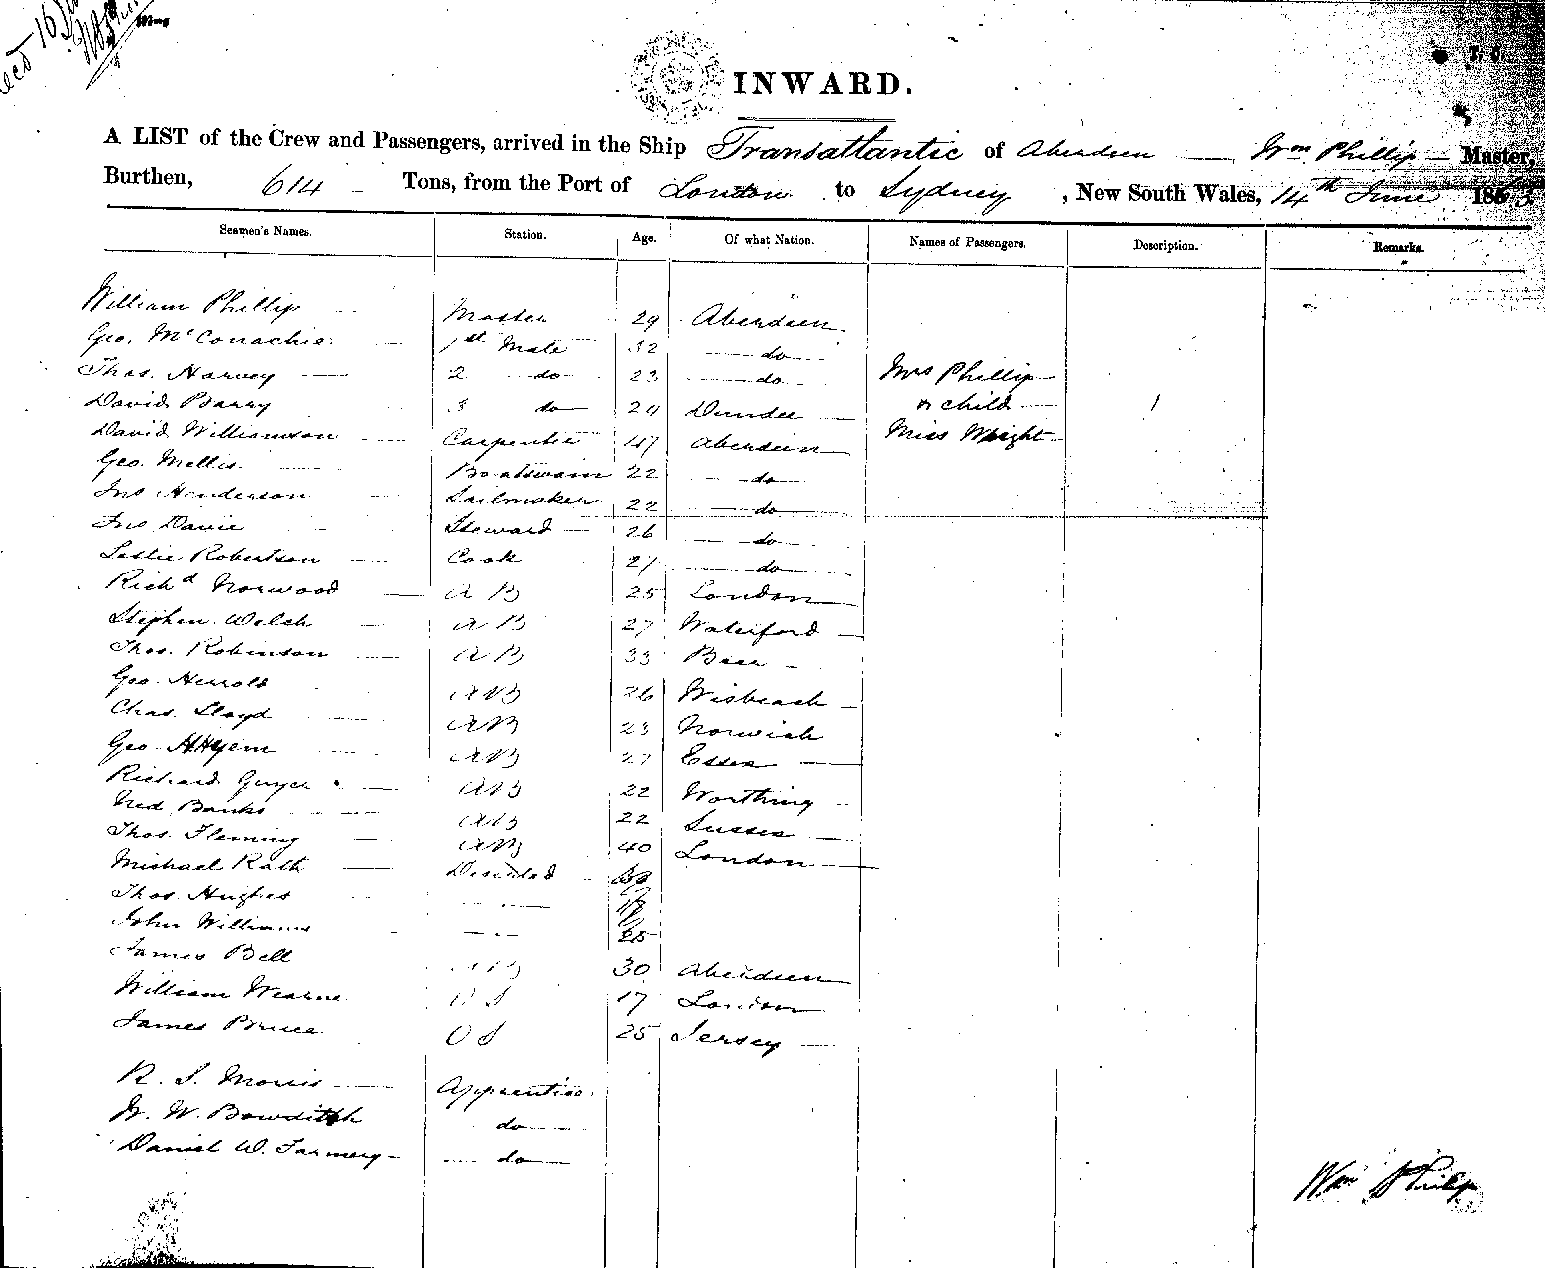 INWARD.
A LIST of the Crew and Passengers, arrived in the Ship Transatlantic of Aberdeen — Wm Phillip — Master,
Burthen, 614 - Tons, from the Port of London to Sydney , New South Wales, 14th June 1863
Seamen's Names. Station. Age. Of what Nation. Names of Passengers. Description. Remarks.
William Phillip — Master 29 Aberdeen
Geo. McConachie — 1st Mate 32 — do —
Thos. Harvey — 2 do 23 — do — Mrs Phillip —
David Barry 3 do 24 Dundee — & child — 1
David Williamson — Carpenter 47 Aberdeen — Miss Wright —
Geo. Mellis — Boatswain 22 — do —
Jno Henderson — Sailmaker 22 — do —
Jno Davie - Steward — 26 — do —
Leslie Robertson — Cook 27 — do —
Richd Norwood — A B 25 London —
Stephen Welch — A B 27 Waterford —
Thos. Robinson — A B 33 -
Geo. A B 26 Wisbeach —
Chas. Lloyd — A B 23 Norwich
Geo. — A B 27 Essex —
Richard — A B 22 Worthing -
Ned Banks — A B 22 Sussex —
Thos. Fleming — A B 40 London —
Michael Rath —
Thos. Hughes — —
John Williams - — 25
James Bell A B 30 Aberdeen —
William Wearne O S 17 London —
James Bruce O S 25 Jersey —
R. S. Morris — Apprentice
W. W. Bowditch do —
Daniel W. Farmery — do —
Wm Philip